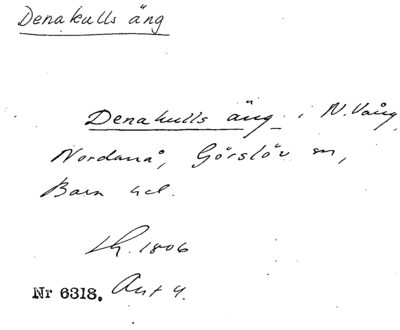 Denakulls äng
Denakulls äng i N. Vång,
Nordanå, Görslöv sn,
Bara hd.
Lh. 1806
Nr 6318. Akt 4.